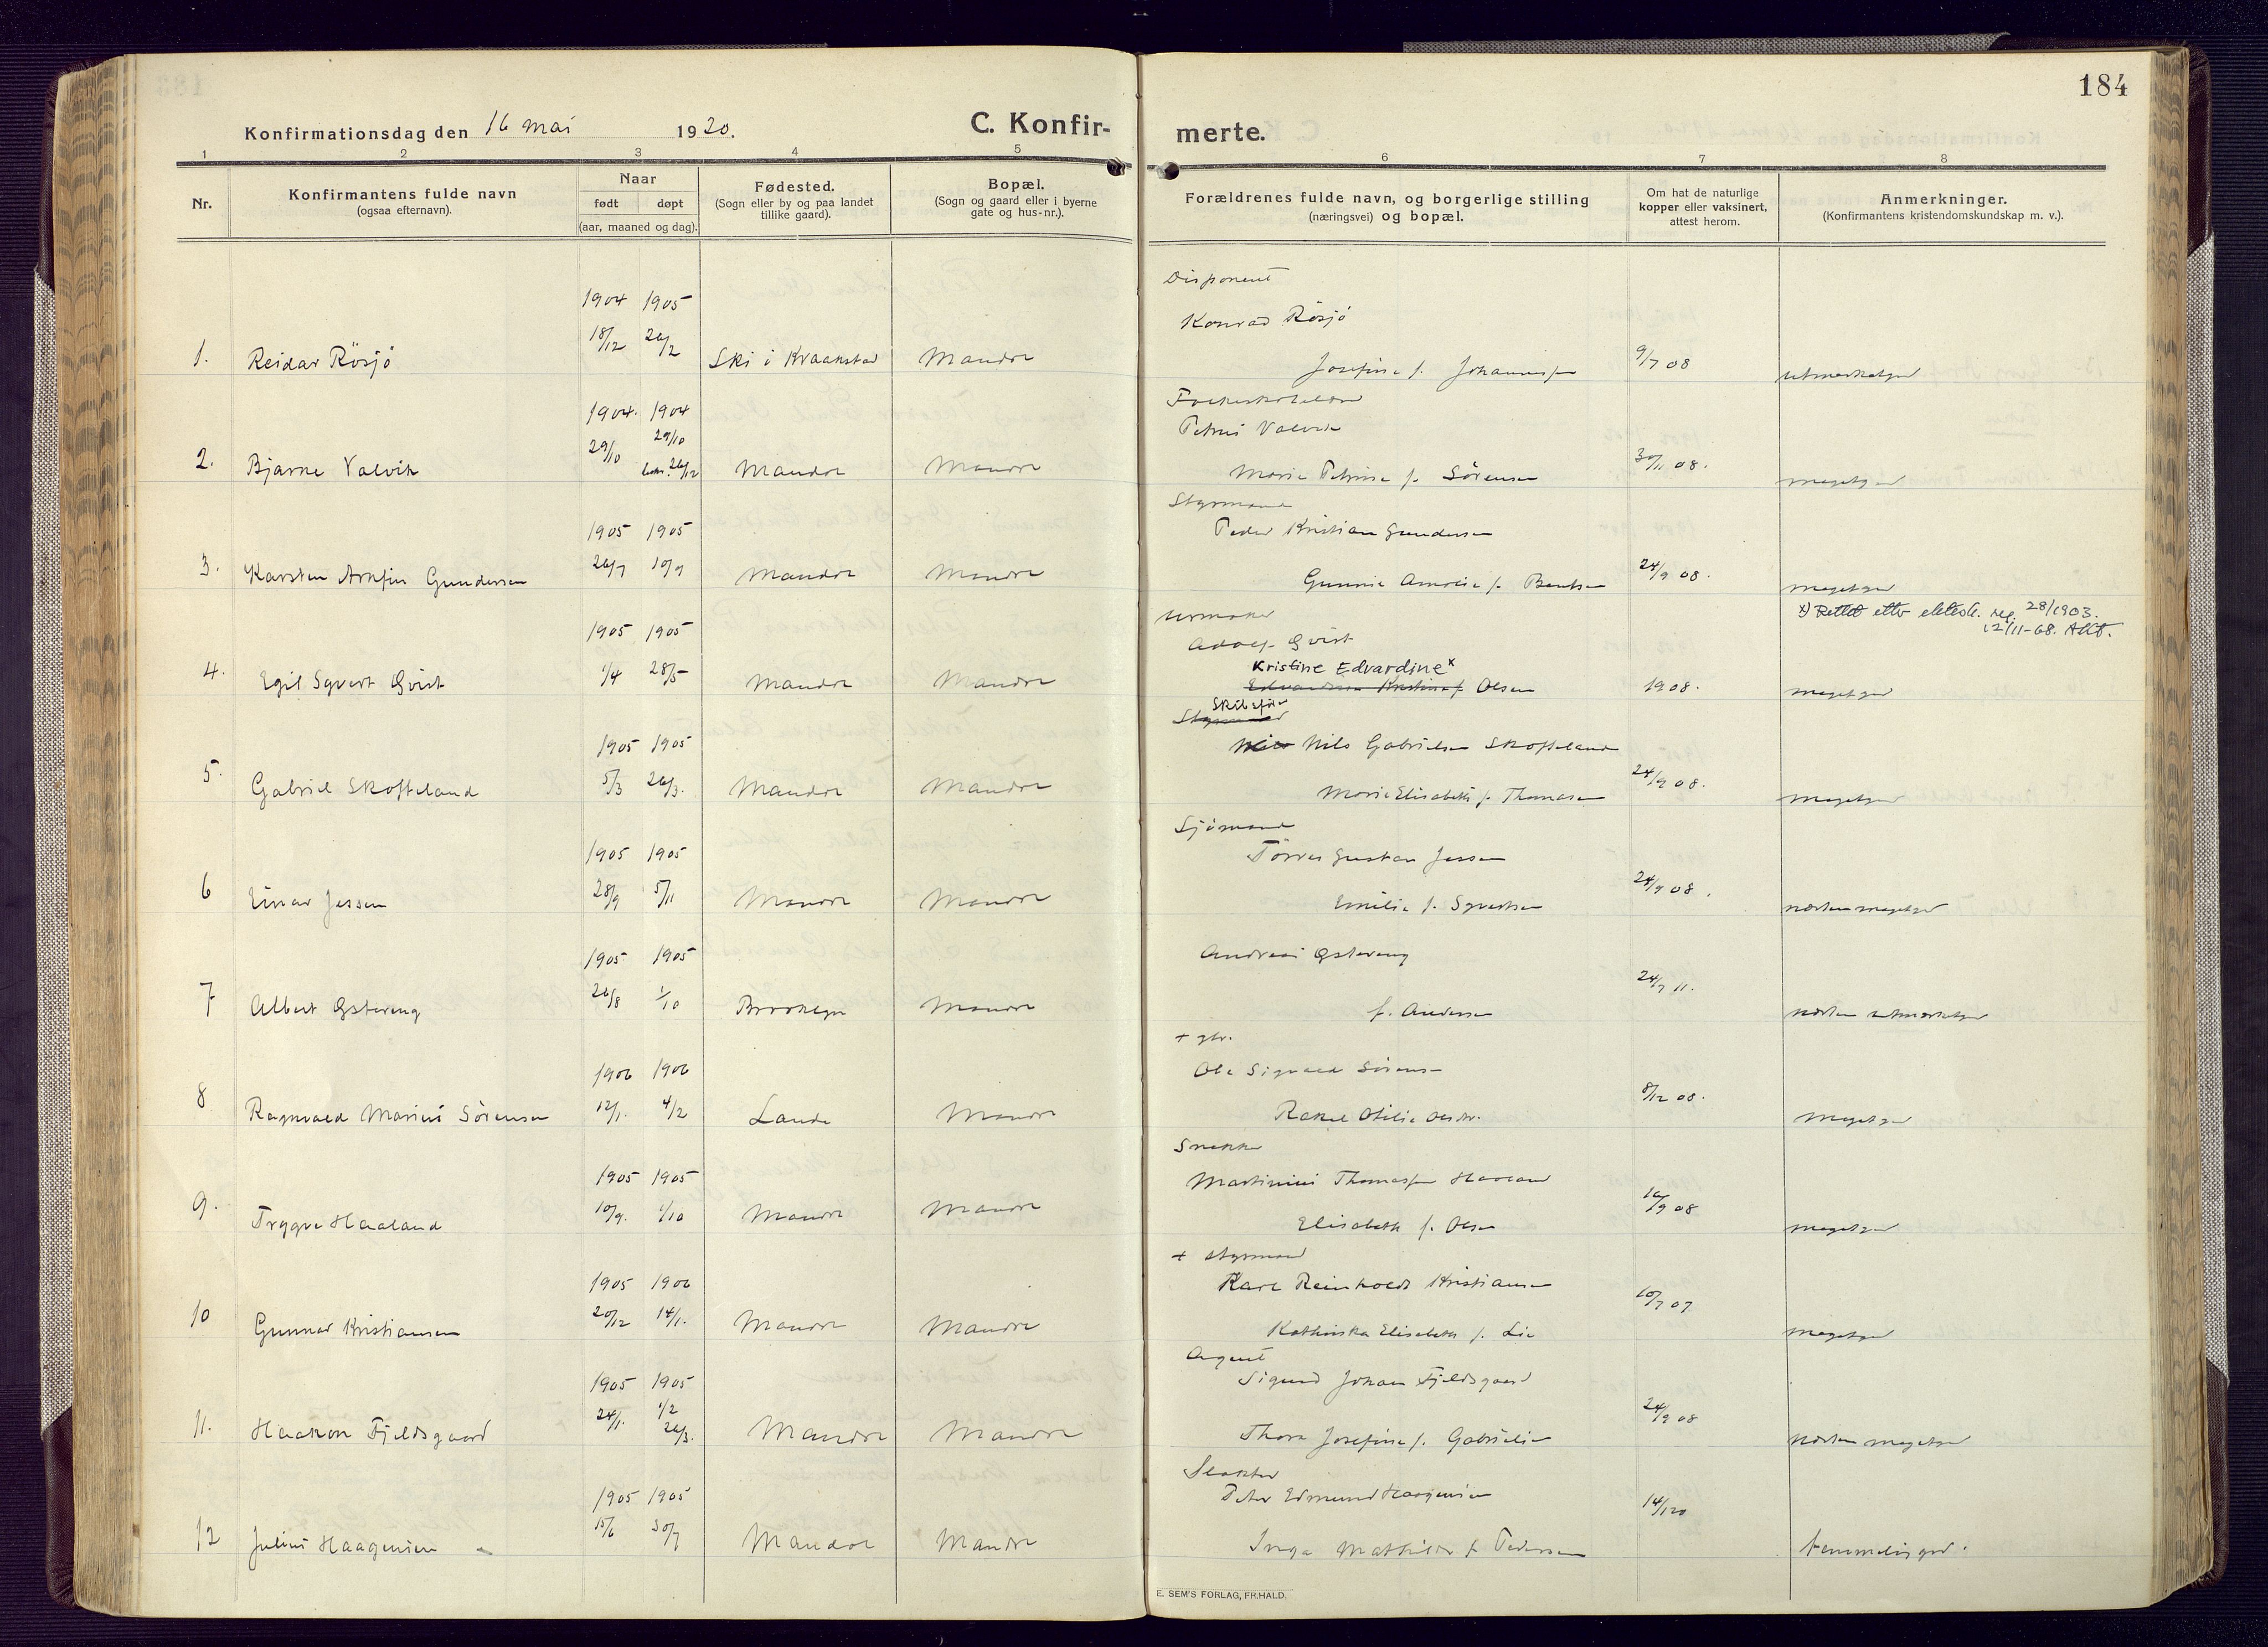 184
Konfirmationsdag den 16 mai 1920.
C. Konfir-
merte.
1 2 3 4 5 6 7 8
Nr.
Konfirmantens fulde navn
(ogsaa efternavn).
Naar
født døpt
(aar, maaned og dag).
Fødested.
(Sogn eller by og paa landet
tillike gaard).
Bopæl.
(Sogn og gaard eller i byerne
gate og hus-nr.).
Forældrenes fulde navn, og borgerlige stilling
(næringsvei) og bopæl.
Om hat de naturlige
kopper eller vaksinert,
attest herom.
Anmerkninger.
(Konfirmantens kristendomskundskap m. v.).
Disponent
1904 1905
Konrad Rösjö
18/12 26/2
1. Reidar Rösjö Ski i Kraakstad Mandal
Josefine f. Johannesen 9/7 08 utmerketgod
1904. 1904
Petrus Valvik
29/10 29/10
2. Bjarne Valvik 26/12 Mandal Mandal
Marie Petrine f. Sörensen 30/11 08. megetgod
Styrmand
1905 1905
Peder Kristian Gundersen
3. Karsten Arnfin Gundersen 26/7 10/9 Mandal Mandal
Gunnie Amalie f. Bentsen 24/9 08. megetgod
x) Rettet etter ektesk. reg. 28/1903.
12/11-68.
urmaker
1905 1905
Adolf Qvist
Kristine Edvardine x
4. Egil Sgvert Qvist 1/4 28/5 Mandal Mandal
Olsen 1908. megetgod
Skibsfører
Styrmand
1905 1905
Nils Gabrielsen Skofteland
5. Gabriel Skofteland 5/3 26/3. Mandal Mandal
Marie Elisabeth f. Thomasen 24/9 08. megetgod
Sjömand
1905 1905
Törres Gustav Jessen
6 Einar Jessen 28/9 5/11 Mandal Mandal
Emilie f. Syvertsen 24/9 08. næsten megetgod
1905 1905
Andreas Østereng
7 Albert Østereng 26/8 1/10 Mandal
f. Andersen 24/7 11. næsten utmerketgod
+ gbr.
1906 1906
Ole Sigvald Sörensen
8 Ragnvald Marius Sörensen 12/1. 4/2 Lande Mandal
Rakel Otilie Olsdtr. 8/12 08. Megetgod
Snekker
1905 1905
Martinius Thomassen Haaland
9. Trygve Haaland 10/9. 1/10 Mandal Mandal
Elisabeth f. Olsen 16/9 08 megetgod
+ styrmand
1905 1906
Karl Reinholdt Kristiansen
10 Gunnar Kristiansen 20/12 14/1. Mandal Mandal
Kathinka Elisabeth f. Lie 10/7 07 megetgod
Agent
1905 1905
Sigurd Johan Fjeldsgaard
24/1. 1/2
11. Haakon Fjeldsgaard 26/3. Mandal Mandal
Thora Josefine f. Gabrielsen 24/9 08 næsten megetgod
Slakter
1905 1905
Peter Edmund Haagensen
12 Julius Haagensen 15/6 30/7 Mandal Mandal
Inga Mathilde f. Pedersen 14/1 20 temmelig god.
E. SEM'S FORLAG, FR.HALD.